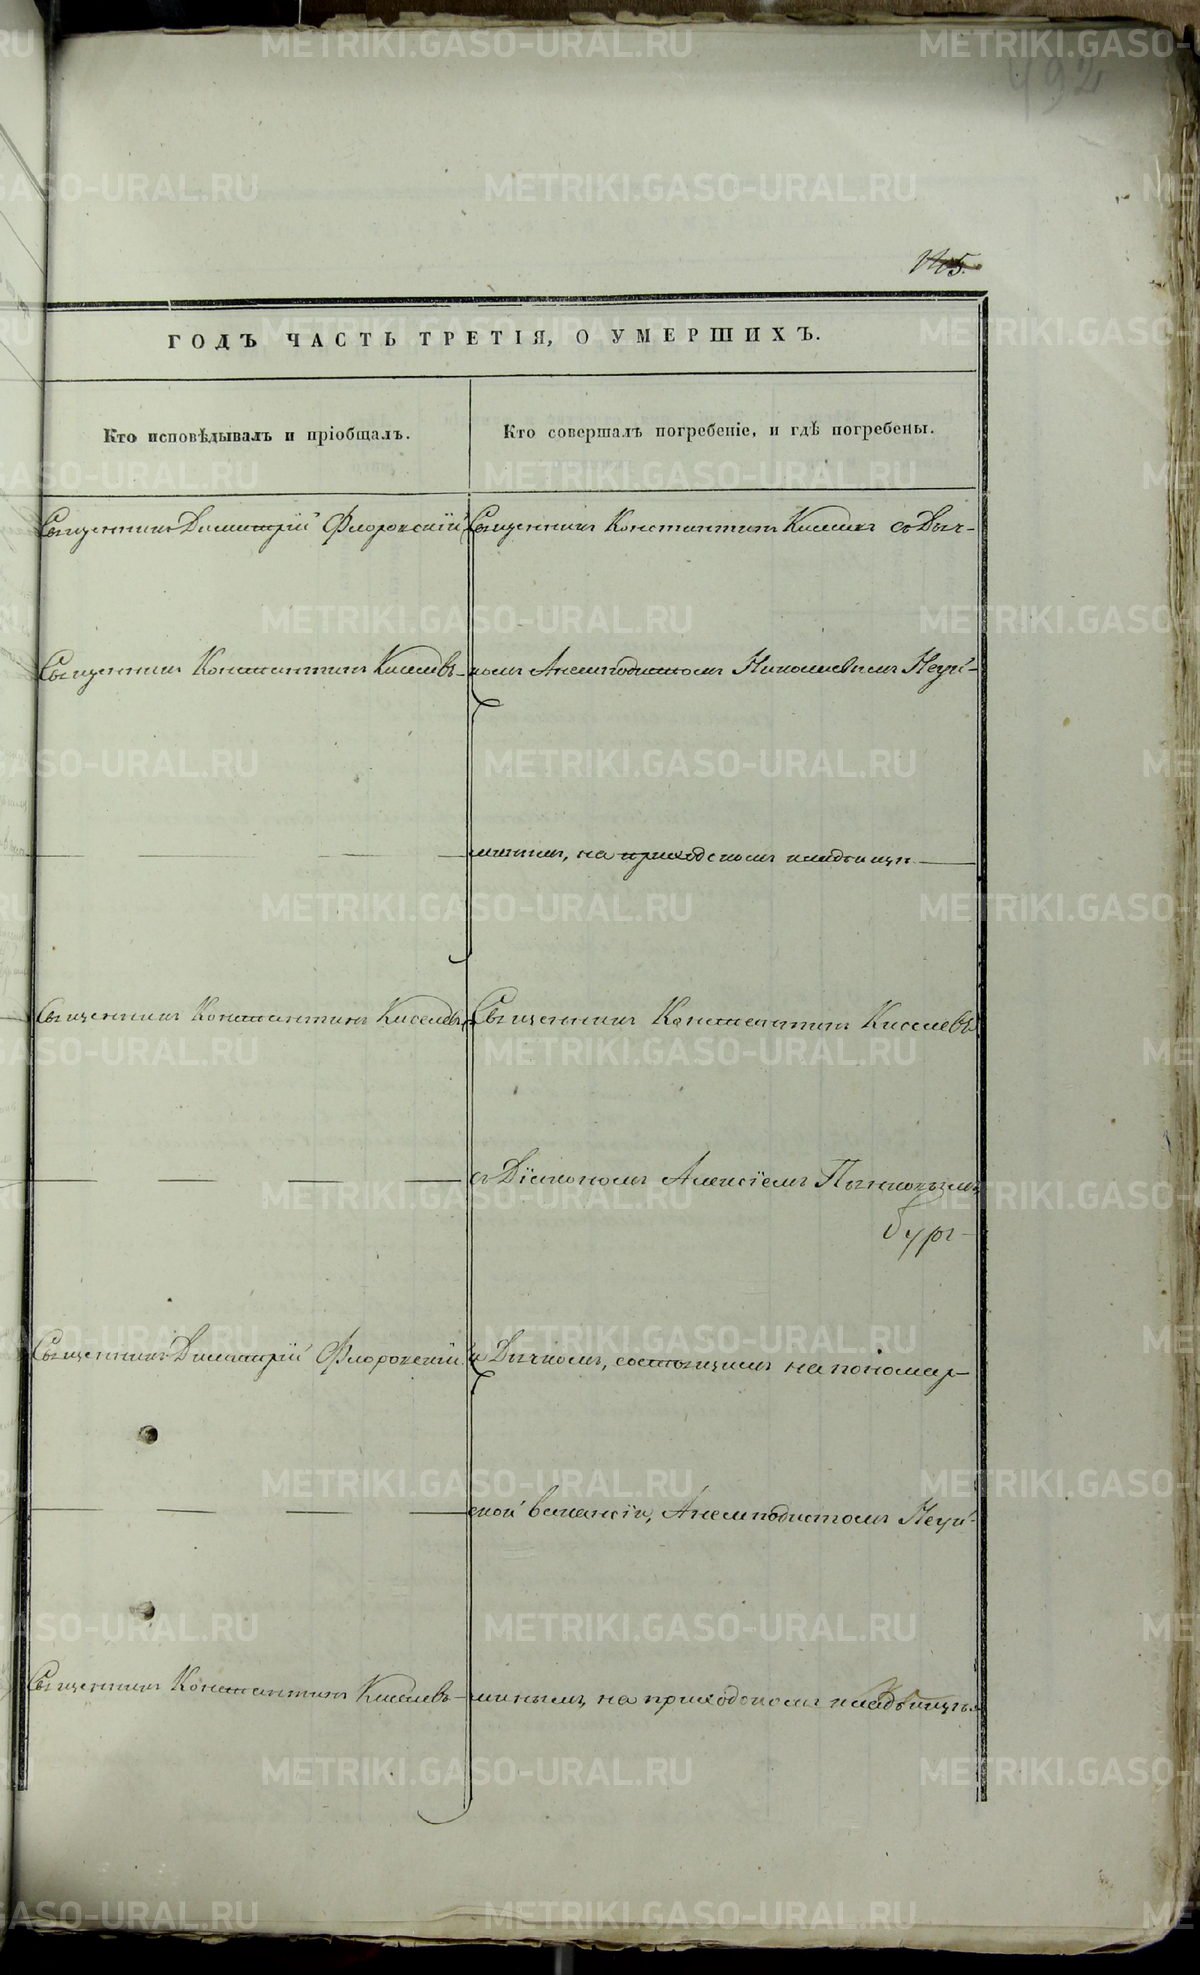 492
ГОДЪ ЧАСТЬ ТРЕТІЯ, О УМЕРШИХЪ.
Кто исповѣдывалъ и пріобщалъ.
Кто совершалъ погребеніе, и гдѣ погребены.
Священникъ Димитрій Флоровскій
Священникъ Константинъ Киселевъ съ Дьяч-
Священникъ Константинъ Киселевъ
комъ Анемподистомъ Николаевымъ Неуй-
минымъ, на приходскомъ кладбищѣ.
Священникъ Константинъ Киселевъ
Священникъ Константинъ Киселевъ
съ Діакономъ Алексіемъ
бург-
Священникъ Димитрій Флоровскій
и Дьячкомъ, состоящимъ на пономар-
ской вакансіи, Анемподистомъ Неуй-
Священникъ Константинъ Киселевъ
минымъ, на приходскомъ кладбищѣ.
METRIKI.GASO-URAL.RU